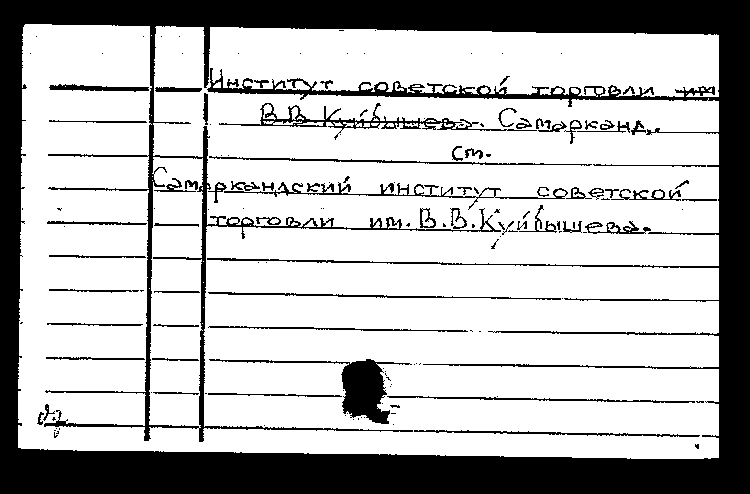 Институт советской торговли им.
В.В. Куйбышева. Самарканд.
см.
Самаркандский институт советской
торговли им. В.В. Куйбышева.